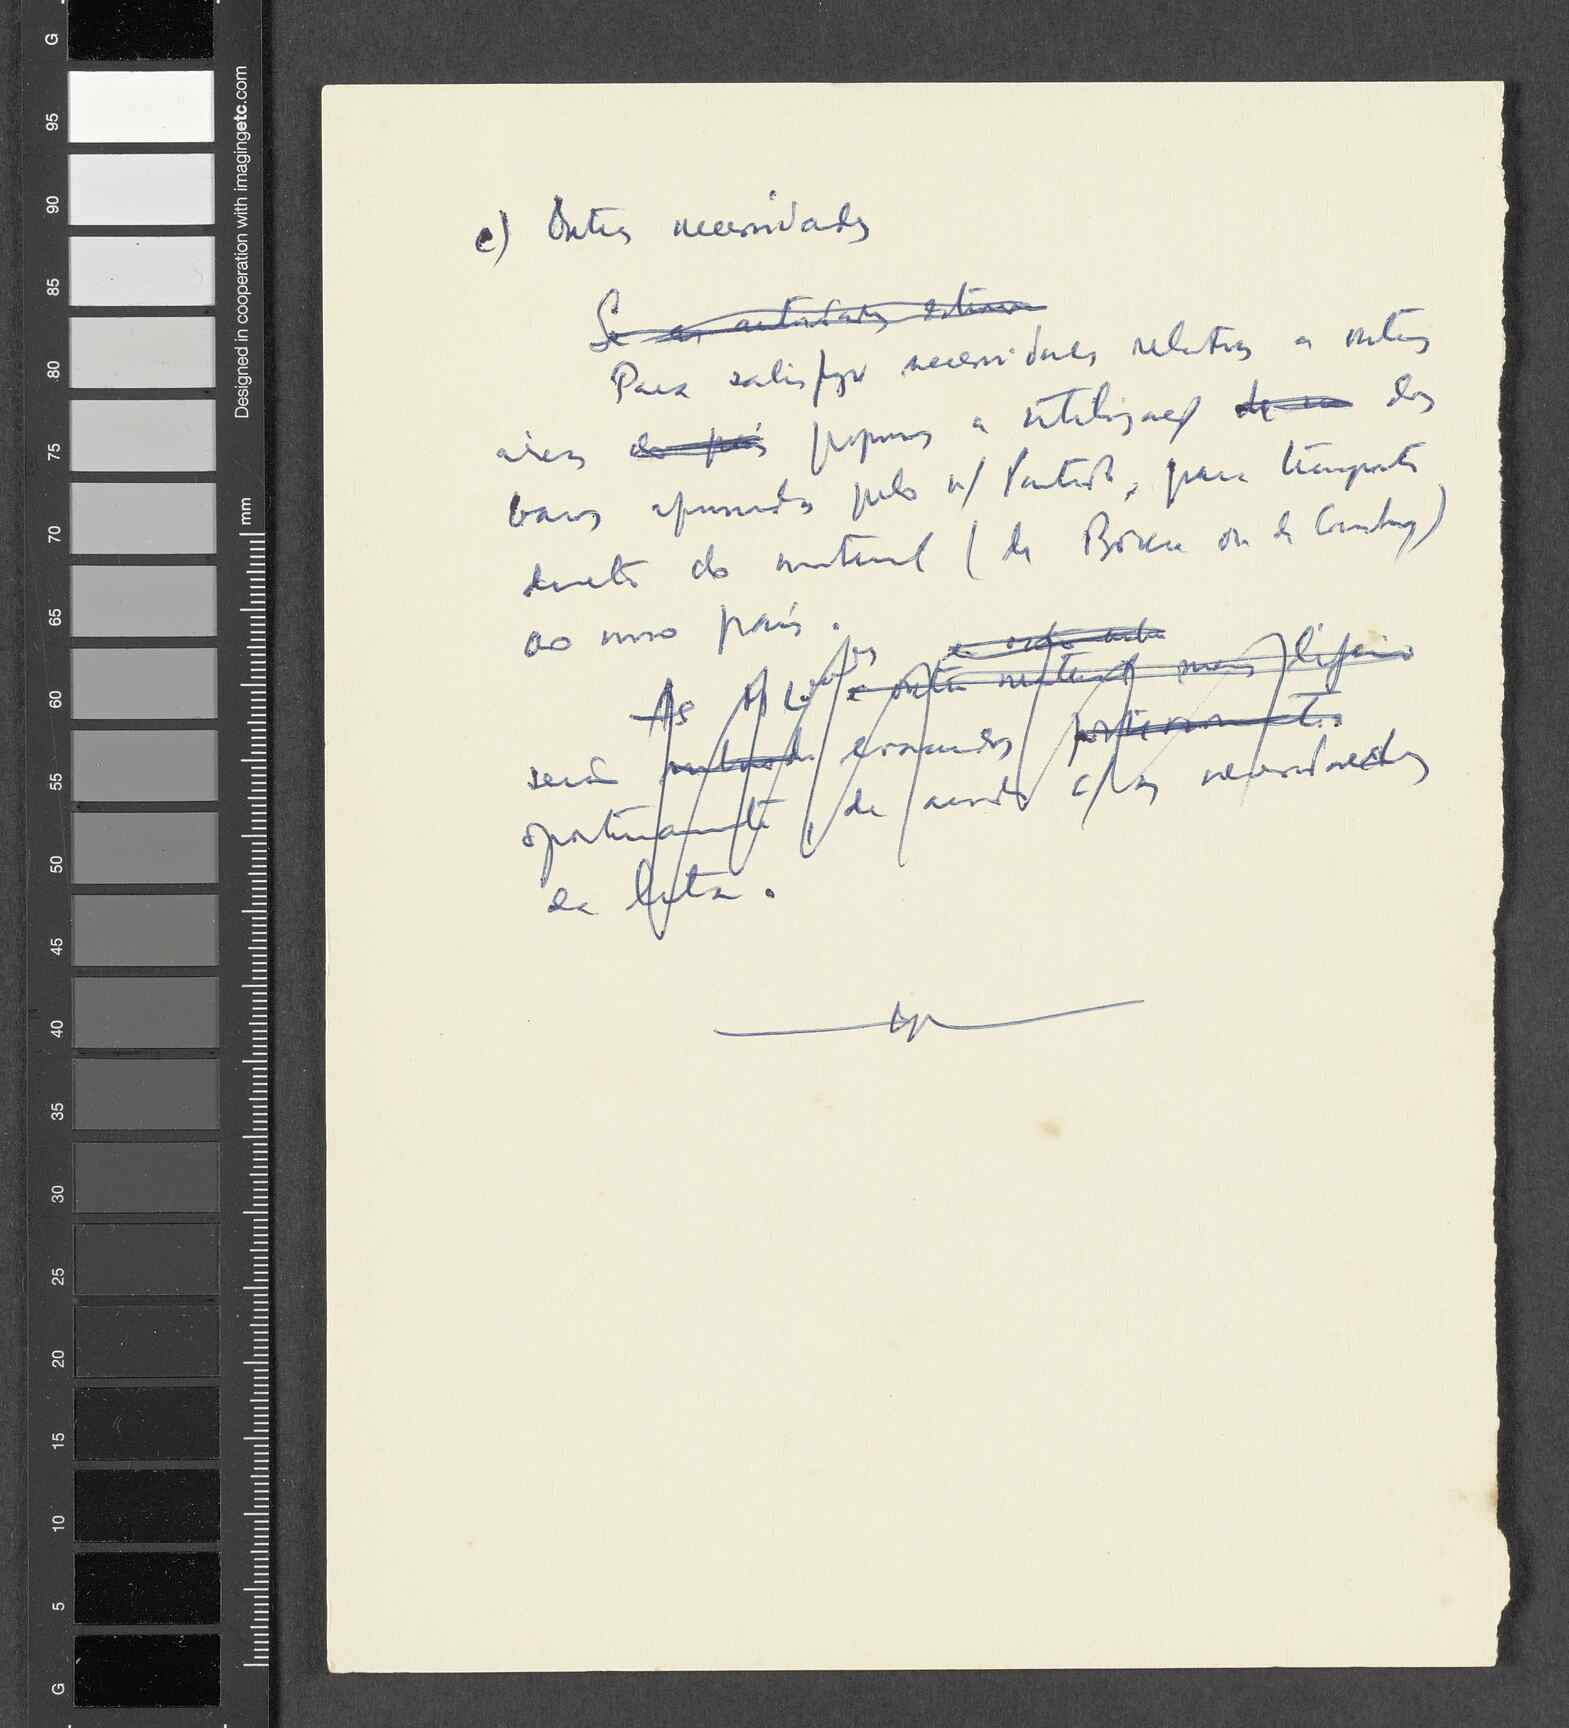 e) Outras necessidades
Se as autoridades
Para satisfazer necessidades relativas a outras
áreas do país propomos a utilização de dos
barcos pelo n/ Partido, para transporte
directo do material ( de ou de Conakry)
ao nosso país.
e outro material mais ligeiro
As
serão posteriormente
oportunamente, de acordo c/ as necessidades
da luta.
G
95
90
85
80
75
70
65
60
55
50
45
40
35
30
25
20
15
10
5
G
Designed in cooperation with imagingetc.com
mm